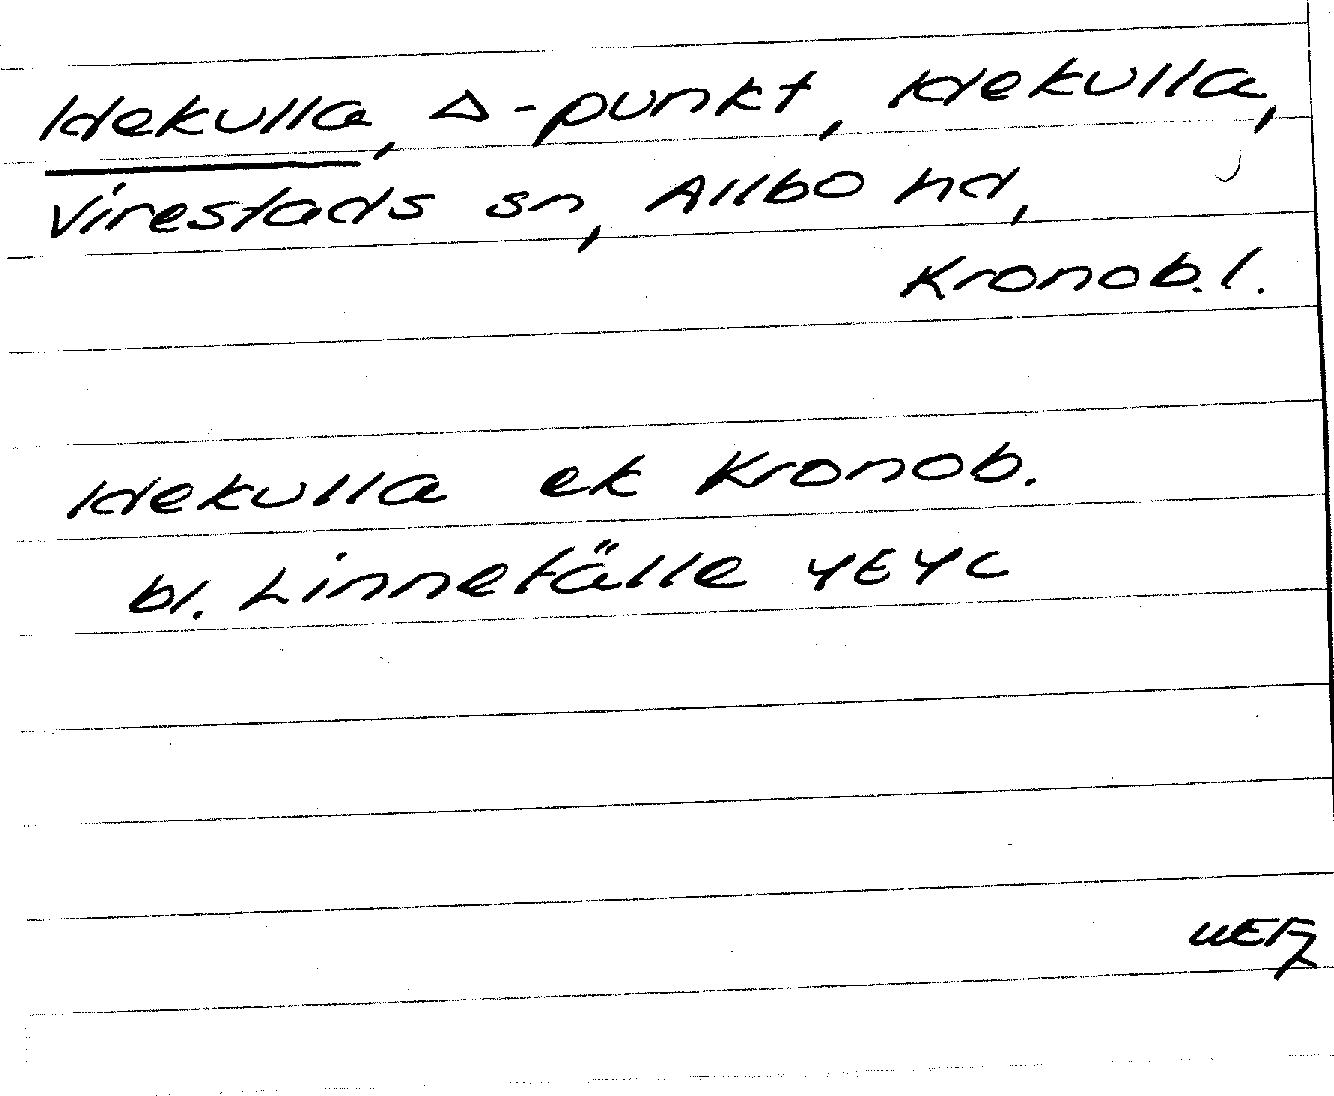 Idekulla, △-punkt, Idekulla,
Virestads sn, Allbo hd,
Kronob. l.
Idekulla ek Kronob.
bl. Linnefälle 4E4c